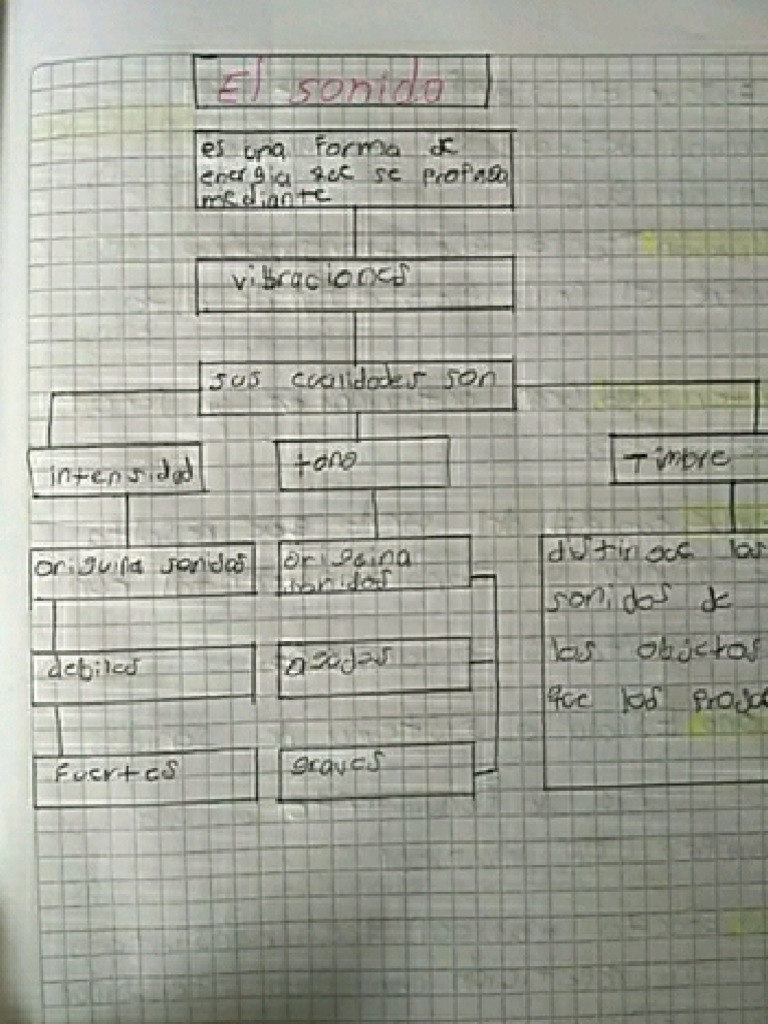 El sonido
es una forma de
energia que se propaga
mediante
vibraciones
sus cualidades son
intensidad
tono
Timbre
origuina sonidos
origuina
sonidos
distingue los
sonidos de
los objetos
que los produc
debiles
agudos
Fuertes
graves